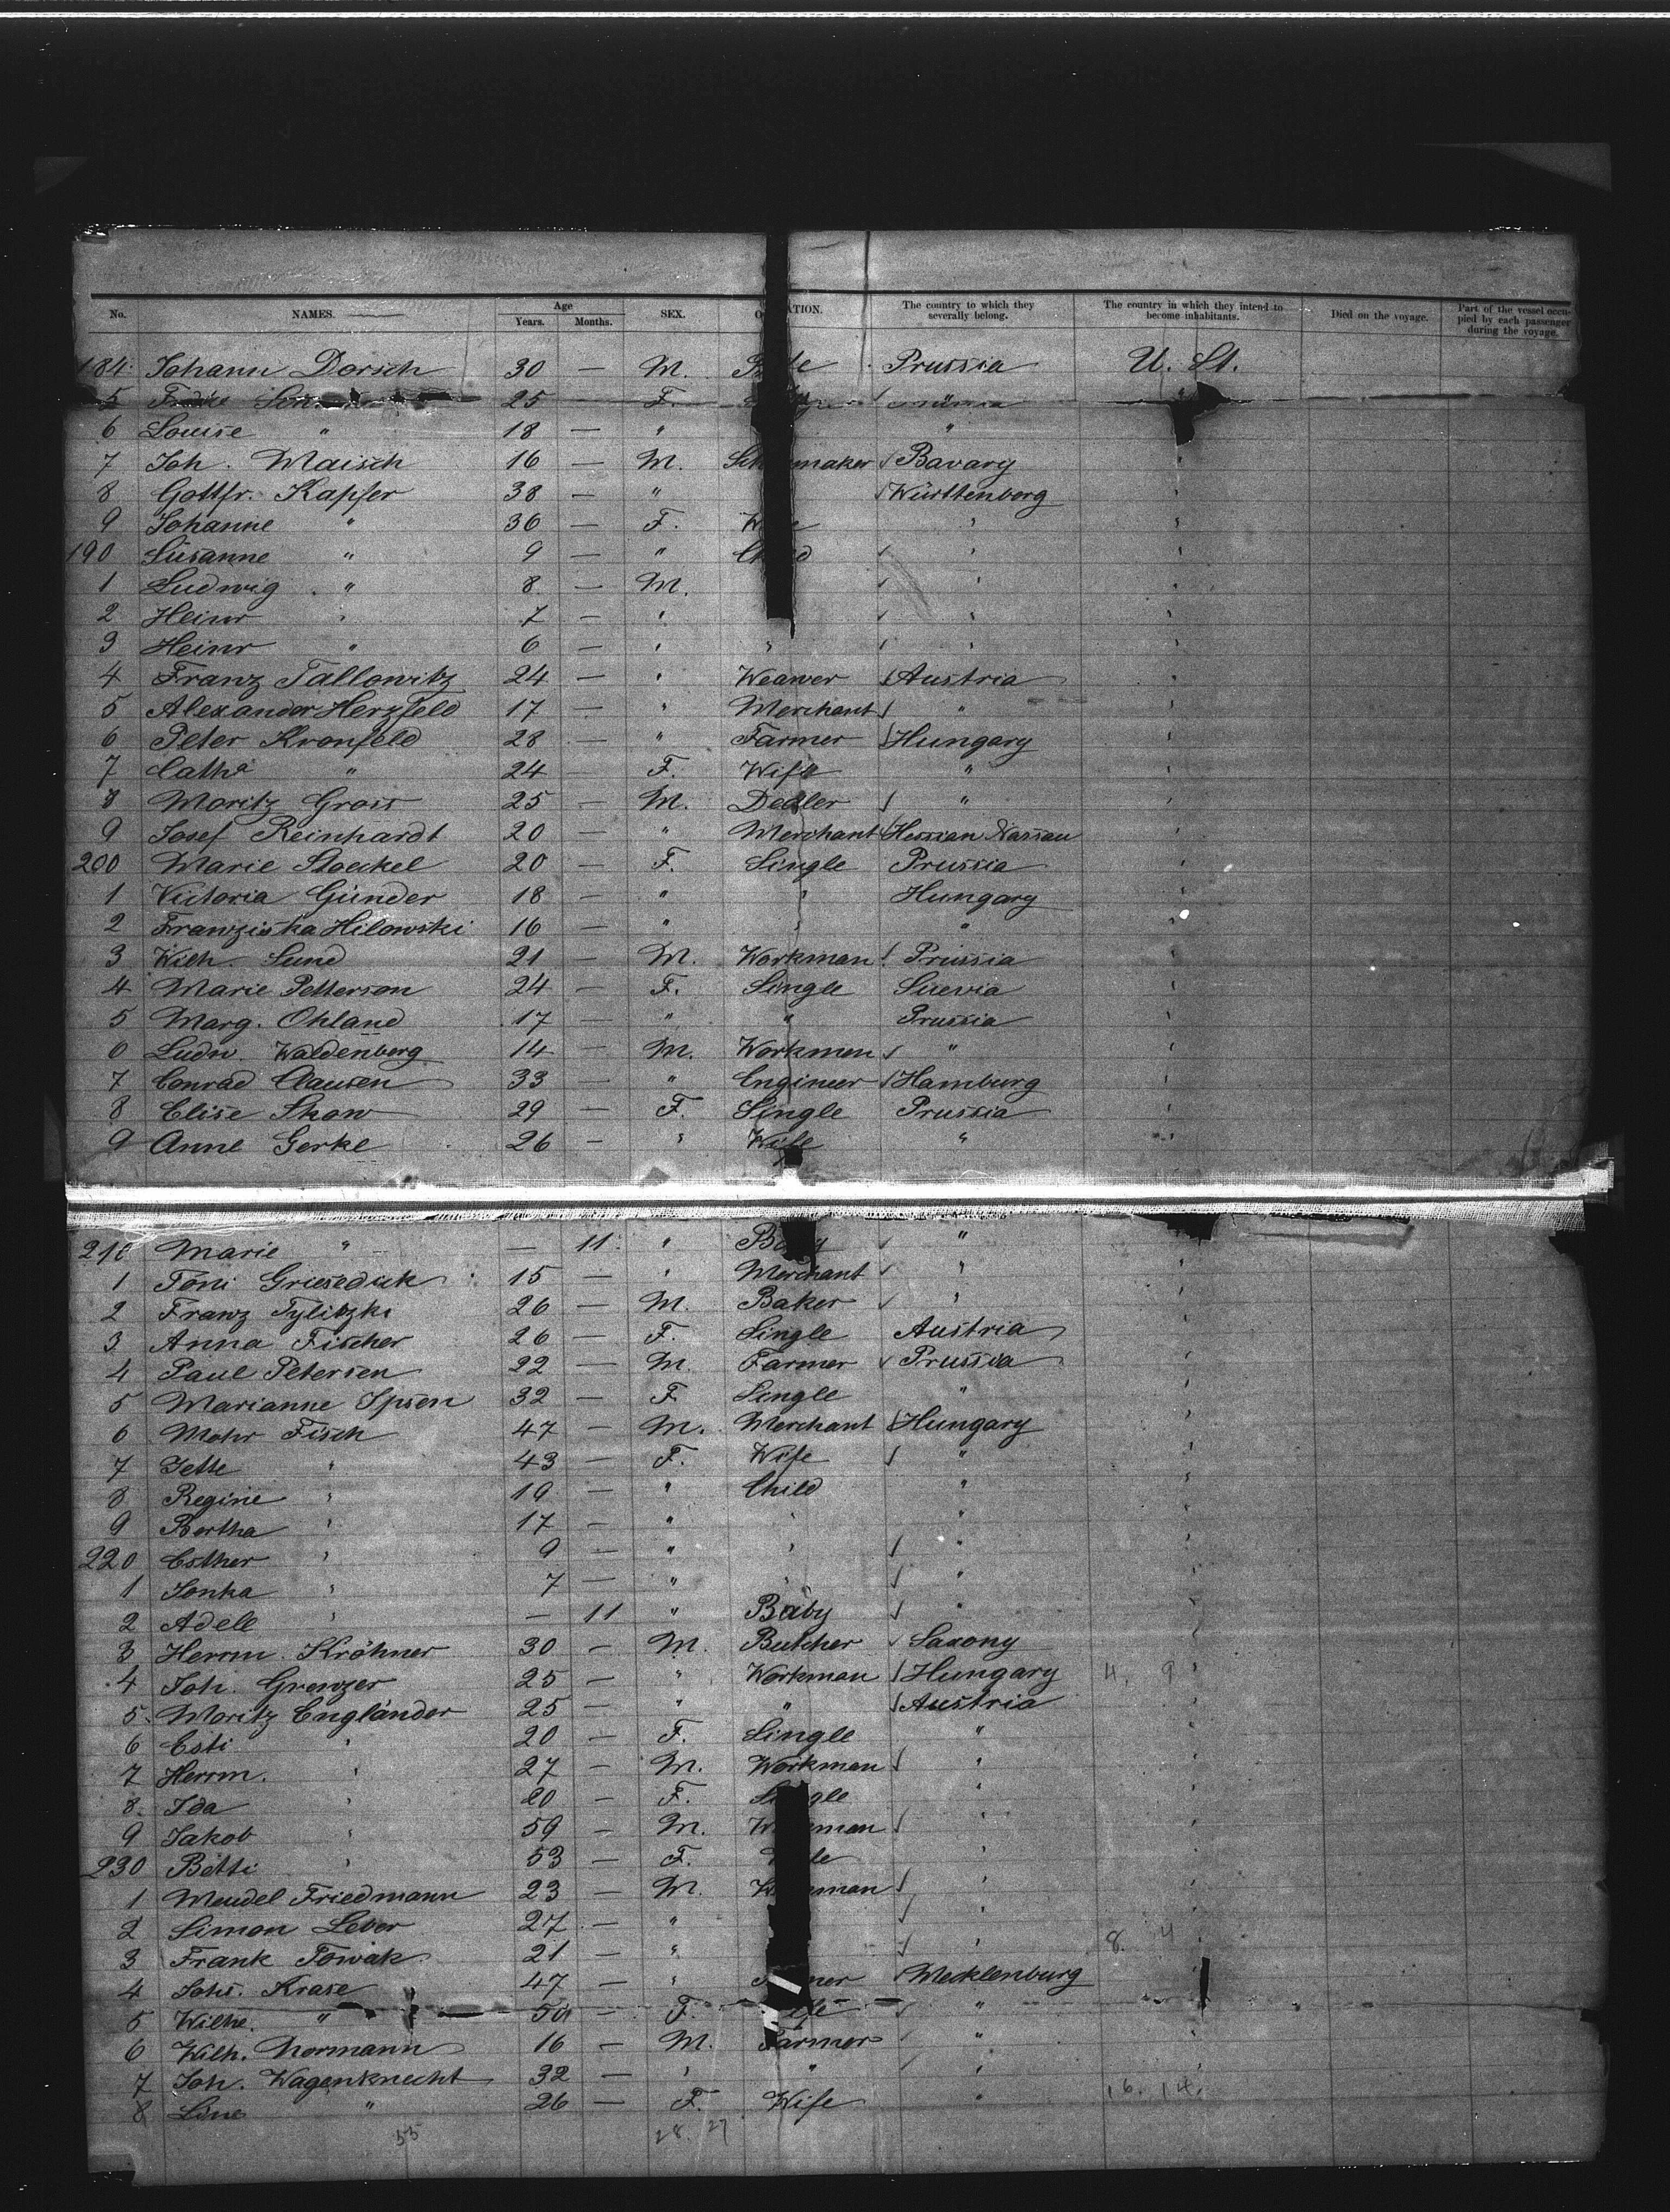 No. NAMES. Age Years. Months. SEX. The country to which they severally belong. The country in which they intend to become inhabitants. Died on the voyage. Part of the vessel occupied by each passenger during the voyage.
184 Johann Dorsch 30 — M. Prussia U. St.
5 25 — F.
6 Louise " 18 — " "
7 Joh. Maisch 16 — M. Bavary
8 Gottfr. Kapfer 38 — " Württenberg
9 Johanne " 36 — F. "
190 Susanne " 9 — " "
1 Ludwig " 8 — M. "
2 Heinr " 7 — " "
3 Heinr " 6 — " " "
4 Franz Tallowitz 24 — " Weawer Austria
5 Alexander Herzfeld 17 — " Merchant "
6 Peter Kronfeld 28 — " Farmer Hungary
7 Cathe " 24 — F. Wife "
8 Moritz Gross 25 — M. "
9 Josef Reinhardt 20 — " Merchant Hessian Nassau
200 Marie Stoeckel 20 — F. Single Prussia
1 Victoria Günder 18 — " " Hungary
2 Franziska Hilowski 16 — " " "
3 Wilh. Lund 21 — M. Workman Prussia
4 Marie Petterson 24 — F. Single Suevia
5 Marg. Ohland 17 — " " Prussia
6 Ludw. Waldenberg 14 — M. Workmen "
7 Conrad Clausen 33 — " Engineer Hamburg
8 Elise Show 29 — F. Single Prussia
9 Anne Gerke 26 — " Wife "
210 Marie " — 11 " "
1 Toni Griesedick 15 — " Merchant "
2 Franz Tylitzki 26 — M. Baker "
3 Anna Fischer 26 — F. Single Austria
4 Paul Petersen 22 — M. Farmer Prussia
5 Marianne Ipsen 32 — F. Single "
6 Mohr Fisch 47 — M. Merchant Hungary
7 Jette " 43 — F. Wife "
8 Regine " 19 — " Child "
9 Bertha " 17 — " " "
220 Esther " 9 — " " "
1 Jonka " 7 — " " "
2 Adele " — 11 " Baby "
3 Herrm. Kröhner 30 — M. Butcher Saxony
4 Joh. Grenzer 25 — " Workman Hungary
5 Moritz Engländer 25 — " " Austria
6 Esti " 20 — F. Single "
7 Herrm. " 27 — M. Workman "
8 Ida " 20 — F. "
9 Jakob " 59 — M. "
230 Betti " 53 — F. "
1 Mendel Friedmann 23 — M. "
2 Simon Leber 27 — " "
3 Frank Towak 21 — " "
4 Johs. Krase 47 — " Mecklenburg
5 Wilhe. " — F. "
6 Wilh. Normann 16 — M. Farmer "
7 Joh. Wagenknecht 32 — " " "
8 Line " 26 — F. Wife "
55 28. 27